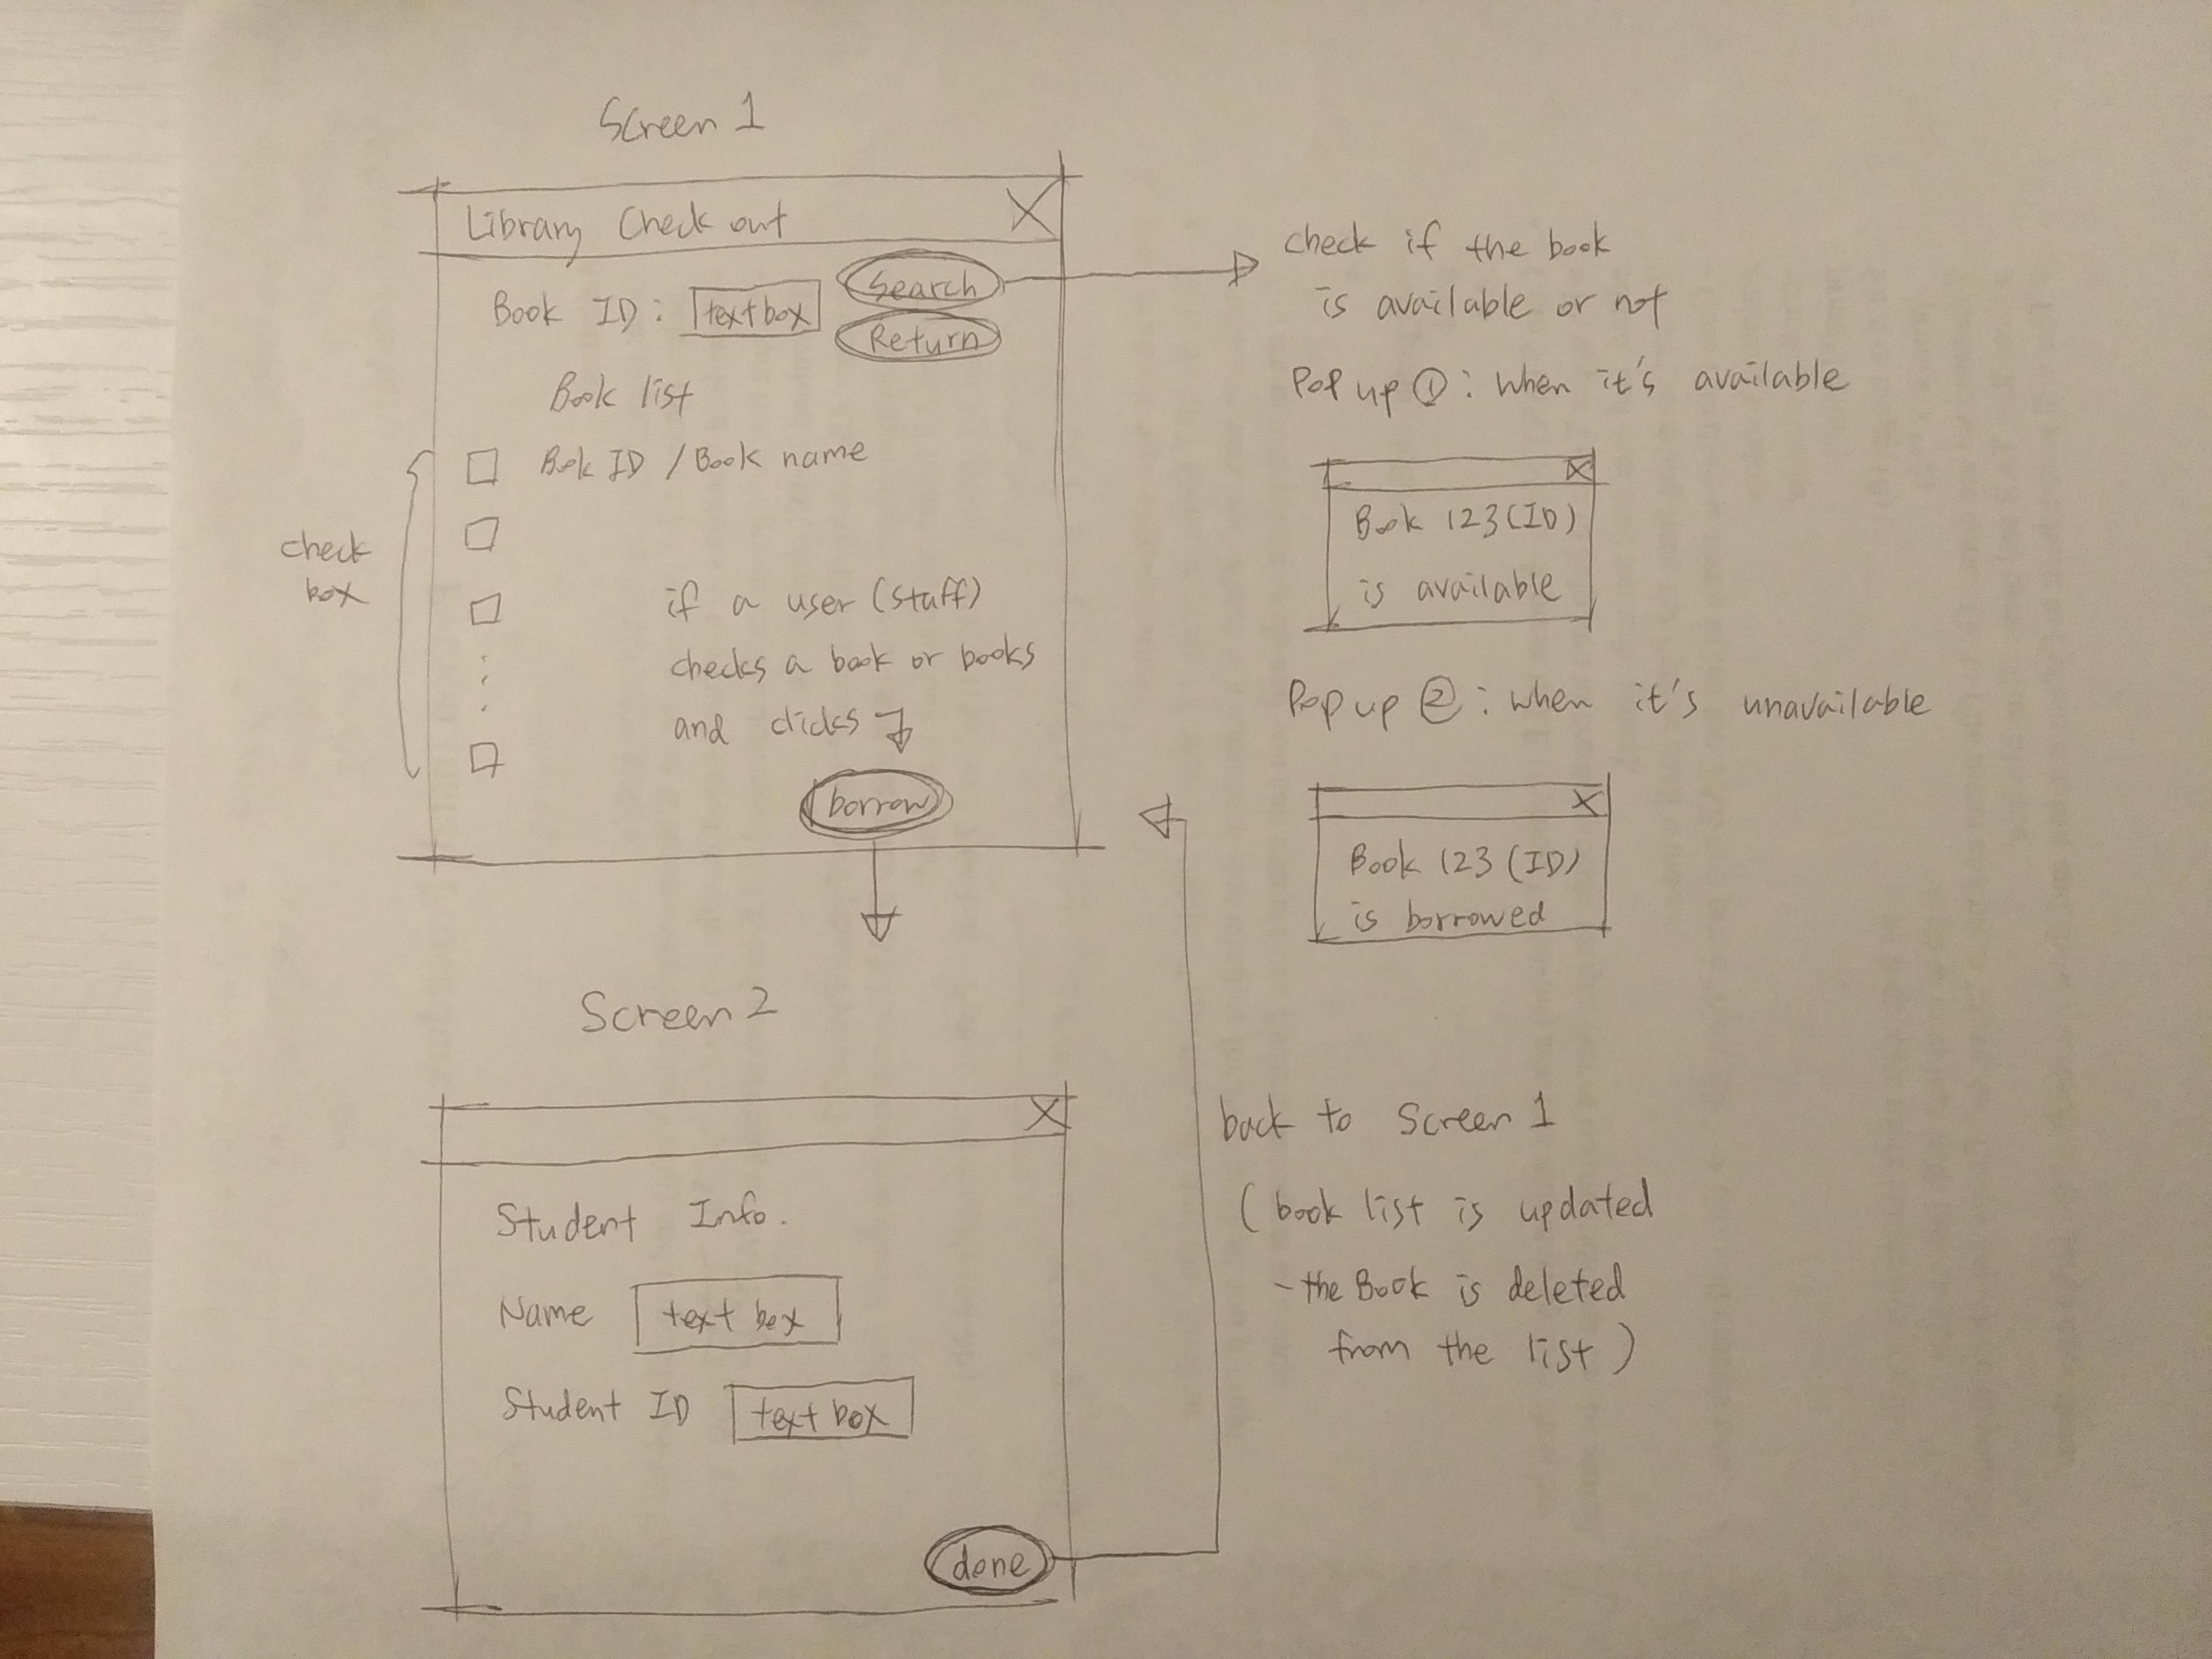 Screen 1
Library Check out X
Book ID: text box Search
Return
Book list
Book ID / Book name
check
box
if a user (staff)
checks a book or books
and clicks
borrow
check if the book
is available or not
Pop up ①: when it's available
X
Book 123 (ID)
is available
Pop up ②: when it's unavailable
X
Book 123 (ID)
is borrowed
Screen 2
X
Student Info.
Name text box
Student ID text box
done
back to Screen 1
(book list is updated
- the Book is deleted
from the list)